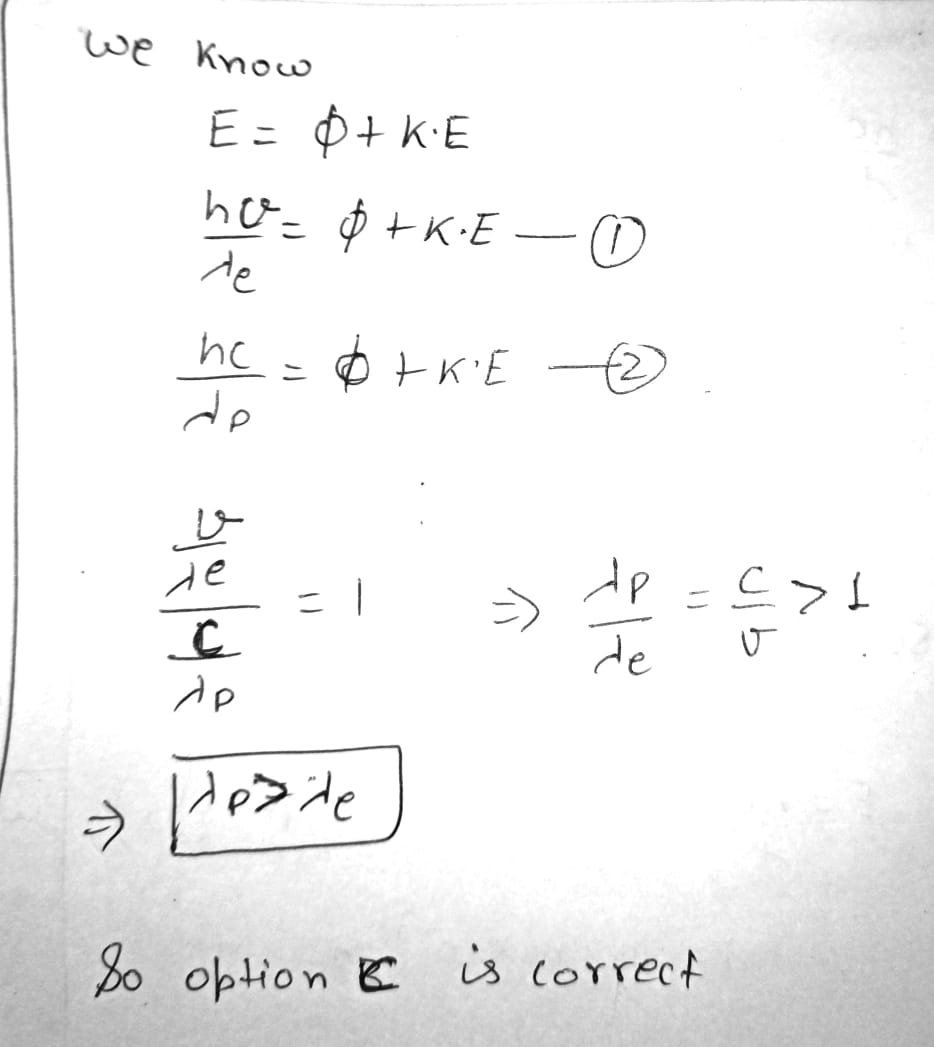 we know
E = ϕ + K.E
hv/λe = ϕ + K.E — ①
hc/λp = ϕ + K.E — ②
(v/λe)/(c/λp) = 1 ⇒ λp/λe = c/v > 1
⇒ λp > λe
So option C is correct